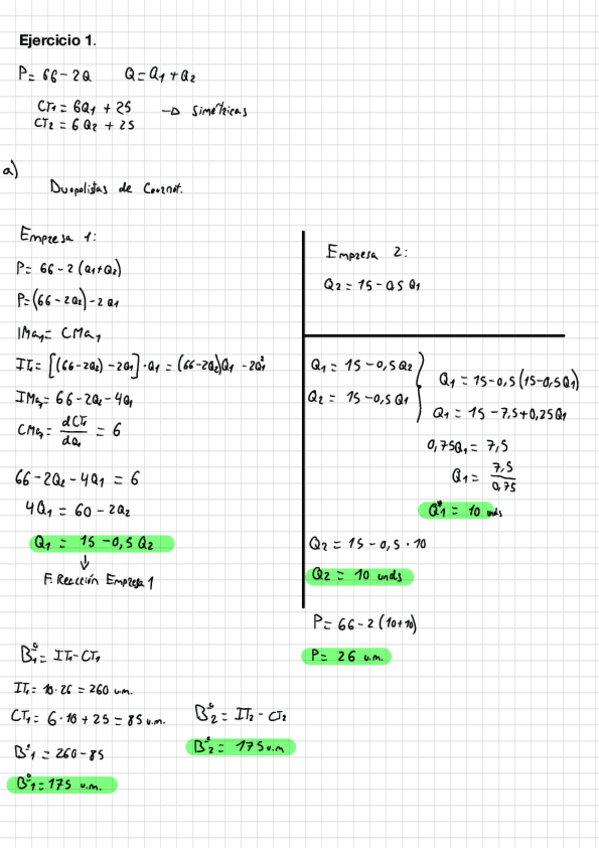 Ejercicio 1.
P= 66-2Q Q=Q1+Q2
CT1= 6Q1 + 25 → Simétricas
CT2= 6Q2 + 25
a)
Duopolistas de Cournot.
Empresa 1:
P= 66-2(Q1+Q2)
P=(66-2Q2)-2Q1
IMa1= CMa1
IT1= [(66-2Q2)-2Q1]·Q1 = (66-2Q2)Q1 -2Q1²
IMa1= 66-2Q2-4Q1
CMa1= dCT1/dQ1 = 6
66-2Q2-4Q1 = 6
4Q1 = 60-2Q2
Q1 = 15-0,5Q2
↓
F. Reacción Empresa 1
Empresa 2:
Q2= 15-0,5Q1
Q1= 15-0,5Q2
Q2= 15-0,5Q1
Q1= 15-0,5(15-0,5Q1)
Q1= 15-7,5+0,25Q1
0,75Q1= 7,5
Q1= 7,5/0,75
Q1*= 10 unds
Q2= 15-0,5·10
Q2= 10 unds
P= 66-2(10+10)
P= 26 u.m.
Bº1= IT1-CT1
IT1= 10·26 = 260 u.m.
CT1= 6·10+25 = 85 u.m.
Bº1= 260-85
Bº1=175 u.m.
Bº2= IT2-CT2
Bº2= 175 u.m